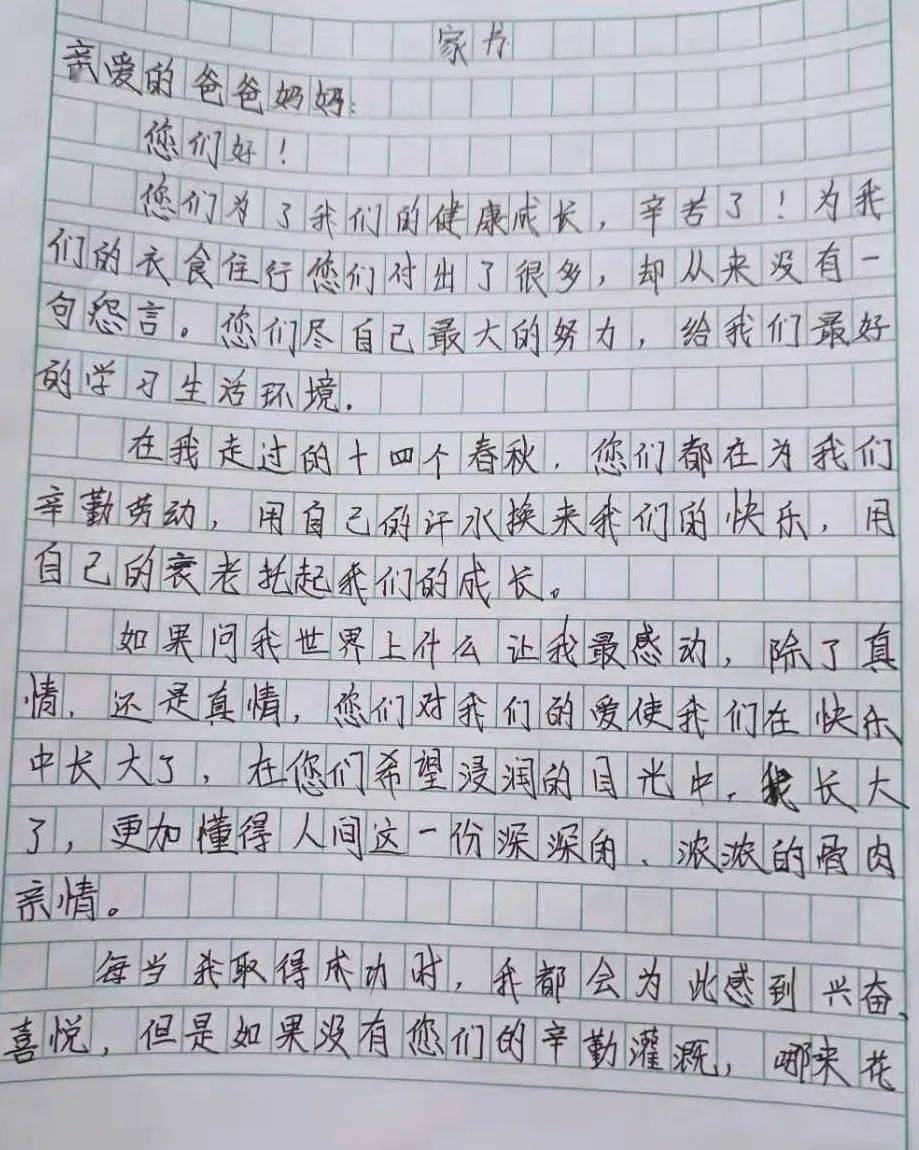 家书
亲爱的爸爸妈妈：
您们好！
您们为了我们的健康成长，辛苦了！为我
们的衣食住行您们付出了很多，却从来没有一
句怨言。您们尽自己最大的努力，给我们最好
的学习生活环境.
在我走过的十四个春秋.您们都在为我们
辛勤劳动，用自己的汗水换来我们的快乐，用
自己的衰老托起我们的成长。
如果问我世界上什么让我最感动，除了真
情，还是真情，您们对我们的爱使我们在快乐
中长大了，在您们希望浸润的目光中，我长大
了，更加懂得人间这一份深深的、浓浓的骨肉
亲情。
每当我取得成功时，我都会为此感到兴奋、
喜悦，但是如果没有您们的辛勤灌溉，哪来花